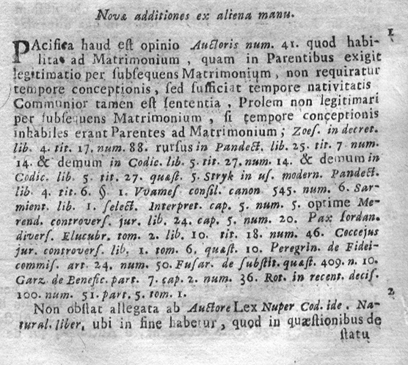 Novæ additiones ex aliena manu.
1
PAcifica haud est opinio Auctoris num. 41. quod habi-
litas ad Matrimonium, quam in Parentibus exigit
legitimatio per subsequens Matrimonium, non requiratur
tempore conceptionis, sed sufficiat tempore nativitatis
Communior tamen est sententia, Prolem non legitimari
per subsequens Matrimonium, si tempore conceptionis
inhabiles erant Parentes ad Matrimonium; Zoes. in decret.
lib. 4. tit. 17. num. 88. rursus in Pandect. lib. 25. tit 7. num.
14. & demum in Codic. lib. 5. tit. 27. num. 14. & demum in
Codic. lib. 5. tit. 27. quæst. 5. Stryk in us. modern. Pandect.
lib. 4. tit. 6. §. 1. Vvames consil. canon 545. num. 6. Sar-
mient. lib. 1. select. Interpret. cap. 5. num. 5. optime Me-
rend. controvers. jur. lib. 24. cap. 5. num. 20. Pax Iordan.
divers. Elucubr. tom. 2. lib. 10. tit. 18. num. 46. Coccejus
jur. controvers. lib. 1. tom. 6. quæst. 10. Peregrin. de Fidei-
commis. art. 24. num. 50. Fusar. de substit. quæst. 409. n. 10.
Garz. de Benefic. part. 7. cap. 2. num. 36. Rot. in recent. decis.
100. num. 51. part. 5. tom. 1.
Non obstat allegata ab Auctore Lex Nuper Cod. ide. Na-
tural. liber. ubi in fine habetur, quod in quæstionibus de
statu